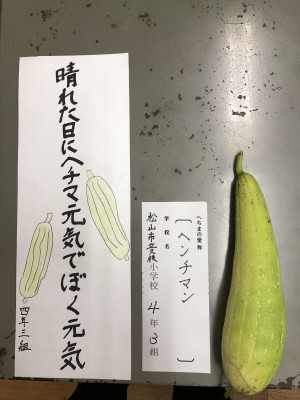 晴れた日にヘチマ元気でぼく元気
四年三組
へちまの愛称
〔ヘンチマン〕
学校名
松山市愛媛小学校 4年3組